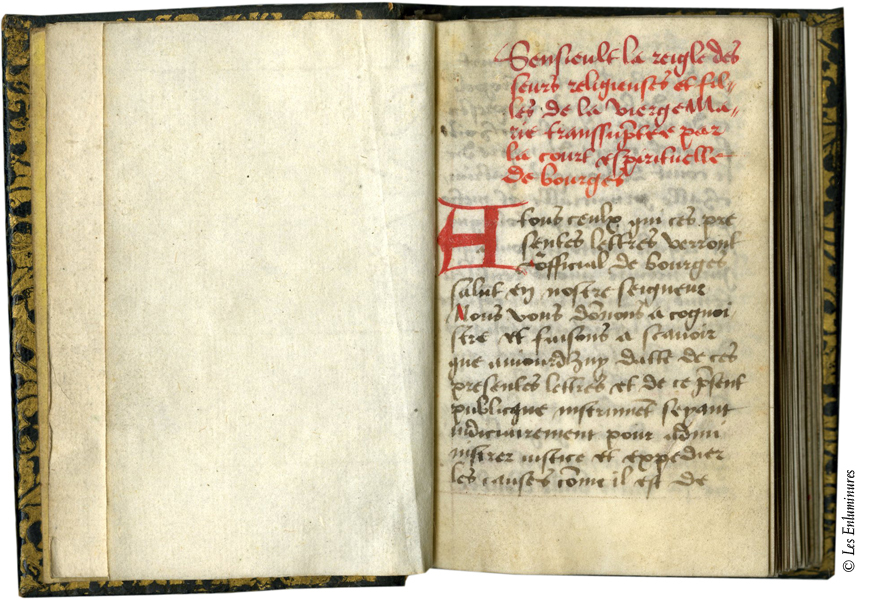 Sensieult la reigle des
seurs religieuses et fil-
les de la vierge Ma-
rie transsuptee par
la court espirituelle
de bourges
A tous ceulx qui ces pre
sentes lettres verront
Lofficial de bourges
salut en nostre seigneur
Nous vous donnons a cognoi
stre et faisons a scavoir
que aujourdhuy datte de ces
presentes lettres et de ce present
publicque instrument seyant
judiciairement pour admi
nistrer justice et expedier
les causes come il est de
© Les Enluminures